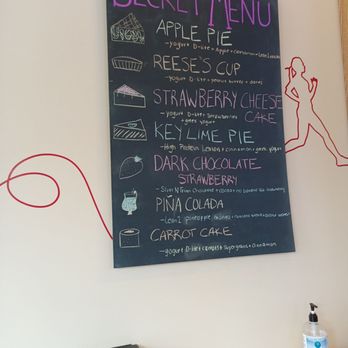 SECRET MENU
APPLE PIE
-yogurt D-Lite + Apple + cinnamon +
REESE'S CUP
-yogurt D-Lite + peanut butter +
STRAWBERRY CHEESE
CAKE
-yogurt D-Lite + Strawberries
+ greek yogurt
KEY LIME PIE
-High Protein Lemon + cinnamon + greek yogurt
DARK CHOCOLATE
STRAWBERRY
-Slim N Trim Chocolate + cocoa + strawberry
PIÑA COLADA
- pineapple +
CARROT CAKE
-yogurt D-Lite + carrots + + cinnamon